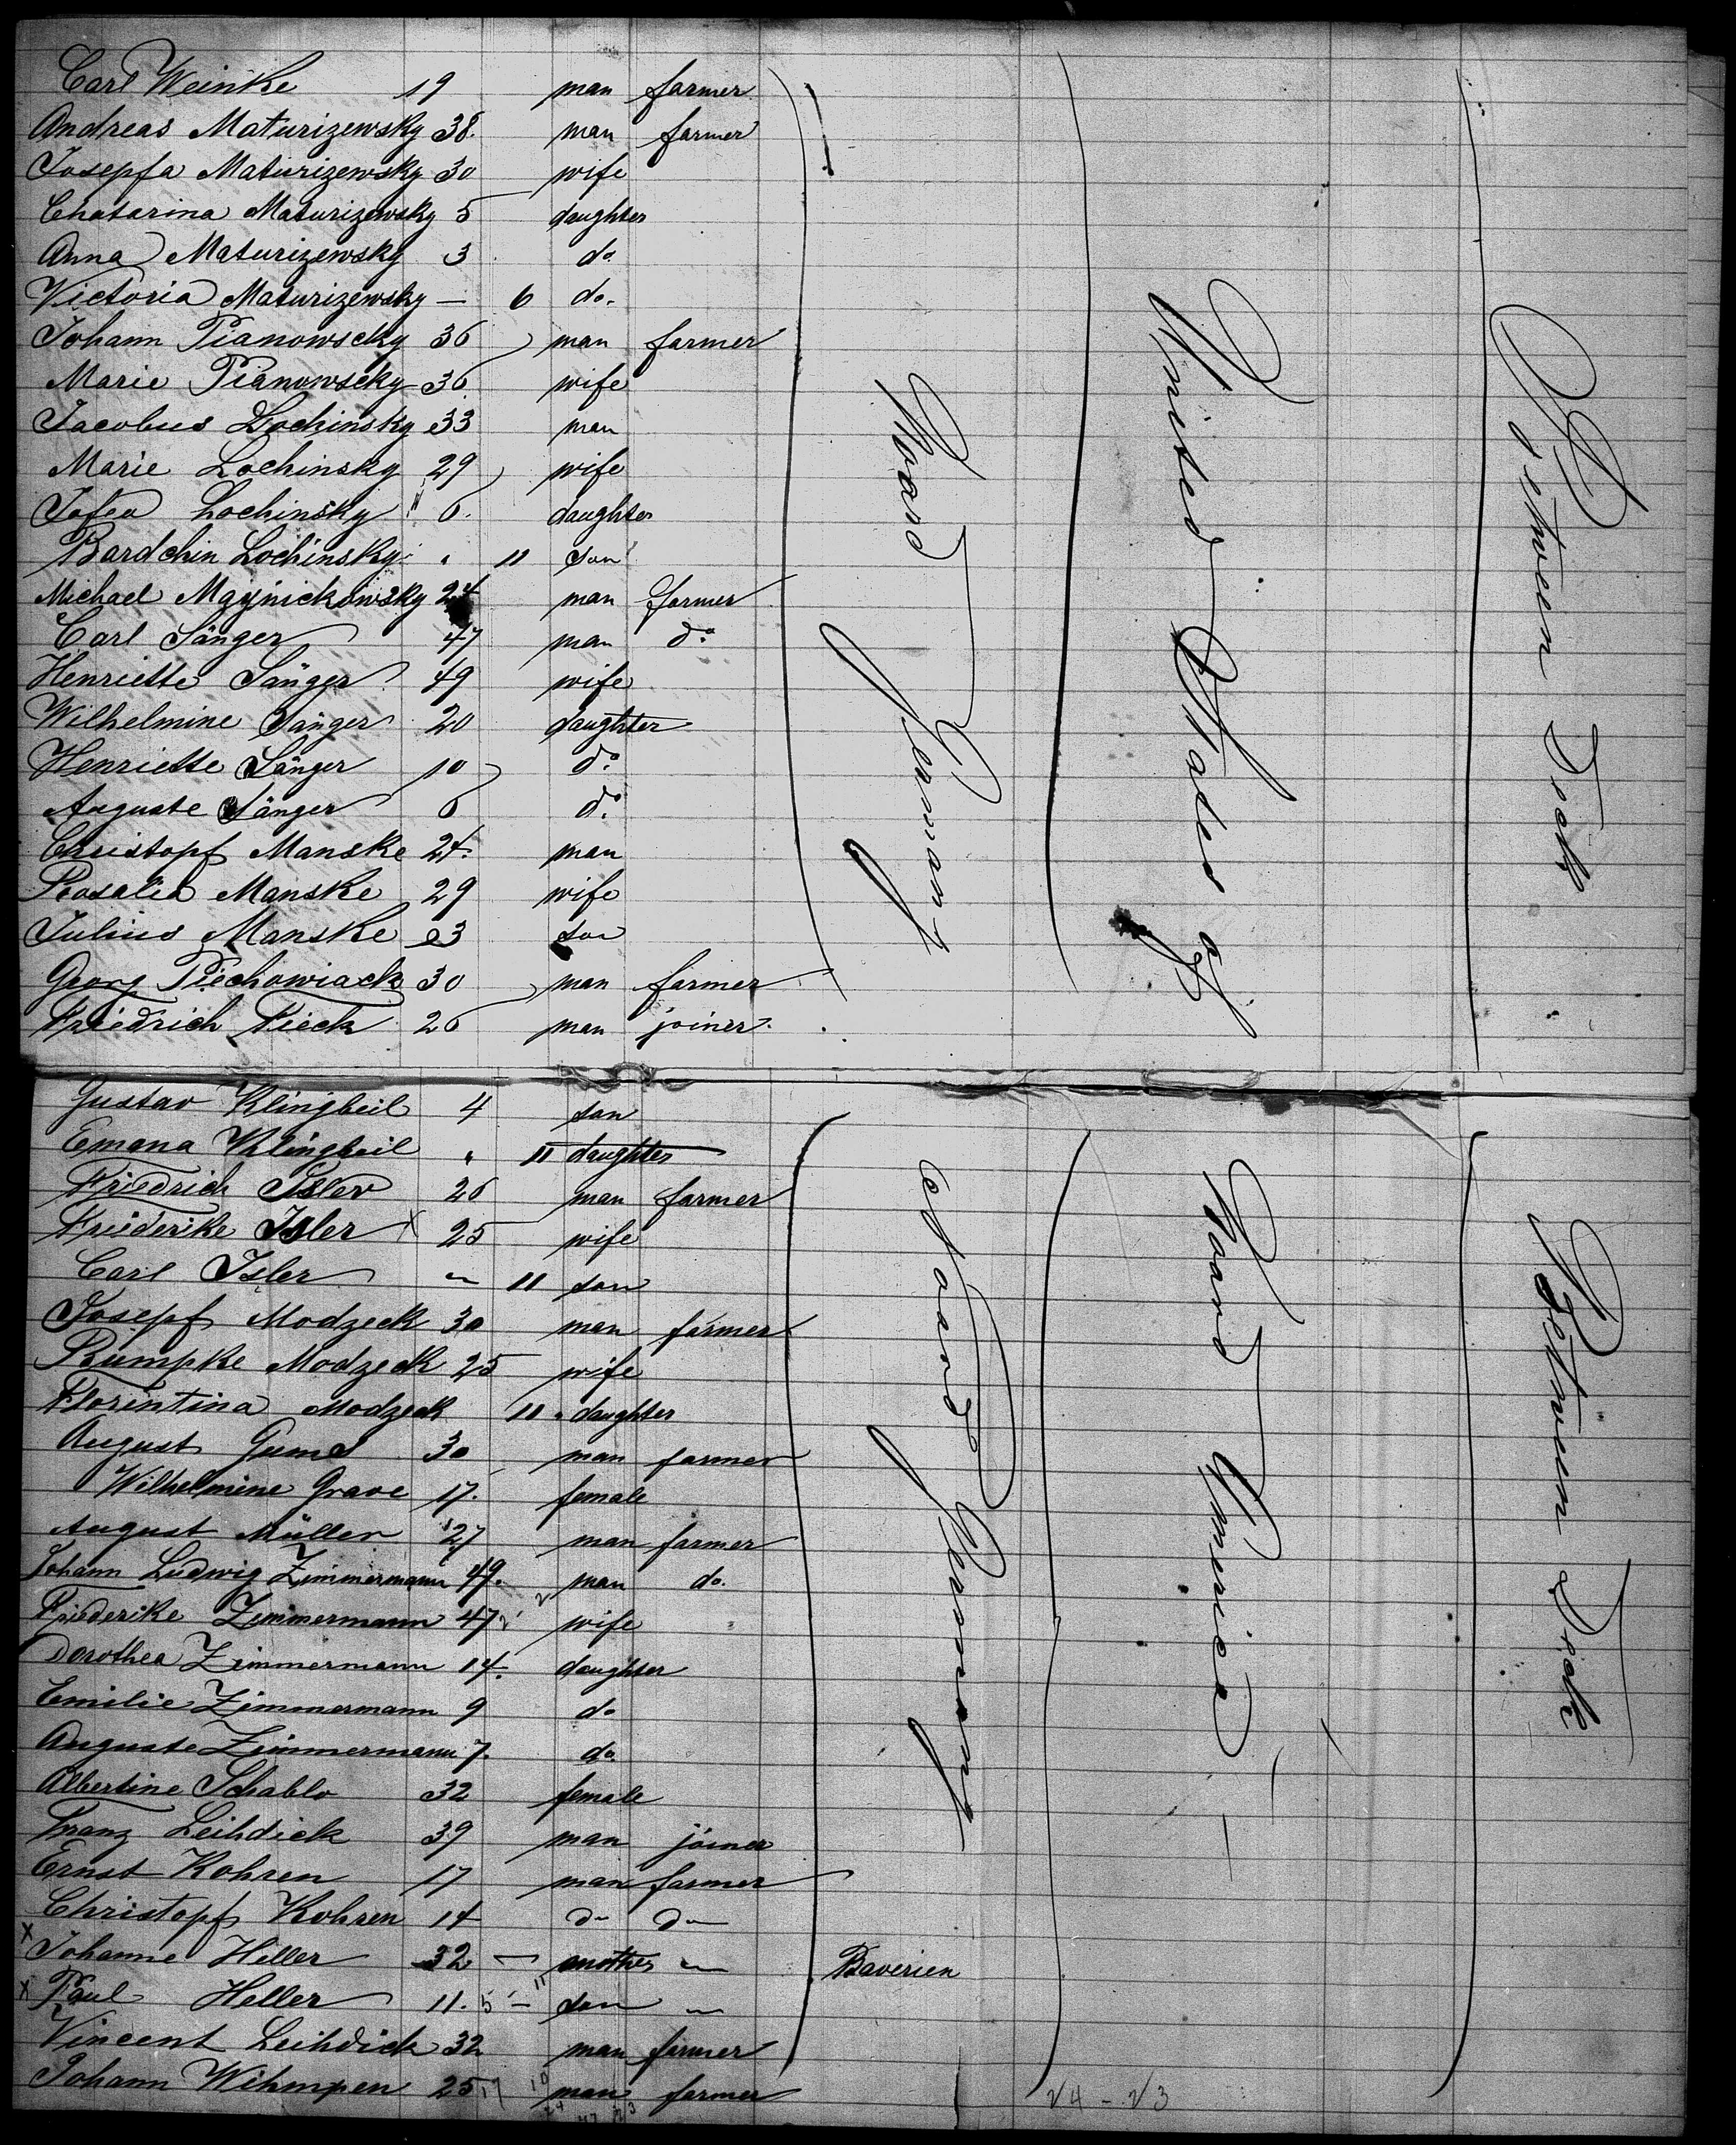 Carl Weinke 19 man farmer
Andreas Maturizewsky 38. man farmer
Josepfa Maturizewsky 30 wife
Chatarina Maturizewsky 5 daughter
Anna Maturizewsky 3 do.
Victoria Maturizewsky — 6 do.
Johann Pianowscky 36 man farmer
Marie Pianowscky 36 wife
Jacobus Lochinsky 33 man
Marie Lochinsky 29 wife
Lochinsky 6. daughter
Bardchin Lochinsky " 11 son
Michael Maynickowsky 24 man farmer
Carl Sänger 47 man do.
Henriette Sänger 49 wife
Wilhelmine Sänger 20 daughter
Henriette Sänger 10 do.
Auguste Sänger 6 do.
Christopf Manske 24. man
Rosalie Manske 29 wife
Julius Manske 3 son
Georg Piechowiack 30 man farmer
Friedrich Fieck 26 man joiner.
Germany
United States of
Between Deck
Gustav Klingbeil 4 son
Emana Klingbeil " 11 daughter
Friedrich Isler 26 man farmer
Friederike Isler x 25 wife
Carl Isler 11 son
Josepf Modzeck 30 man farmer
Rumpke Modzeck 25 wife
Florintina Modzeck 11 daughter
August Gums 30 man farmer
Wilhelmine Grave 17. female
August Müller 27 man farmer
Johann Ludwig Zimmermann 49. man do.
Friederike Zimmermann 47 wife
Dorothea Zimmermann 14. daughter
Emilie Zimmermann 9 do
Auguste Zimmermann 7. do.
Albertine Schablo 32 female
Franz Leihdick 39 man joiner
Ernst Kohren 17 man farmer
Christopf Kohren 14 do do
x Johanne Heller 32 — mother Baverien
x Paul Heller 11. 5 — son
Vincent Leihdick 32 man farmer
Johann Wihmpen 25 man farmer
Germany
America
Between Deck
24 - 23